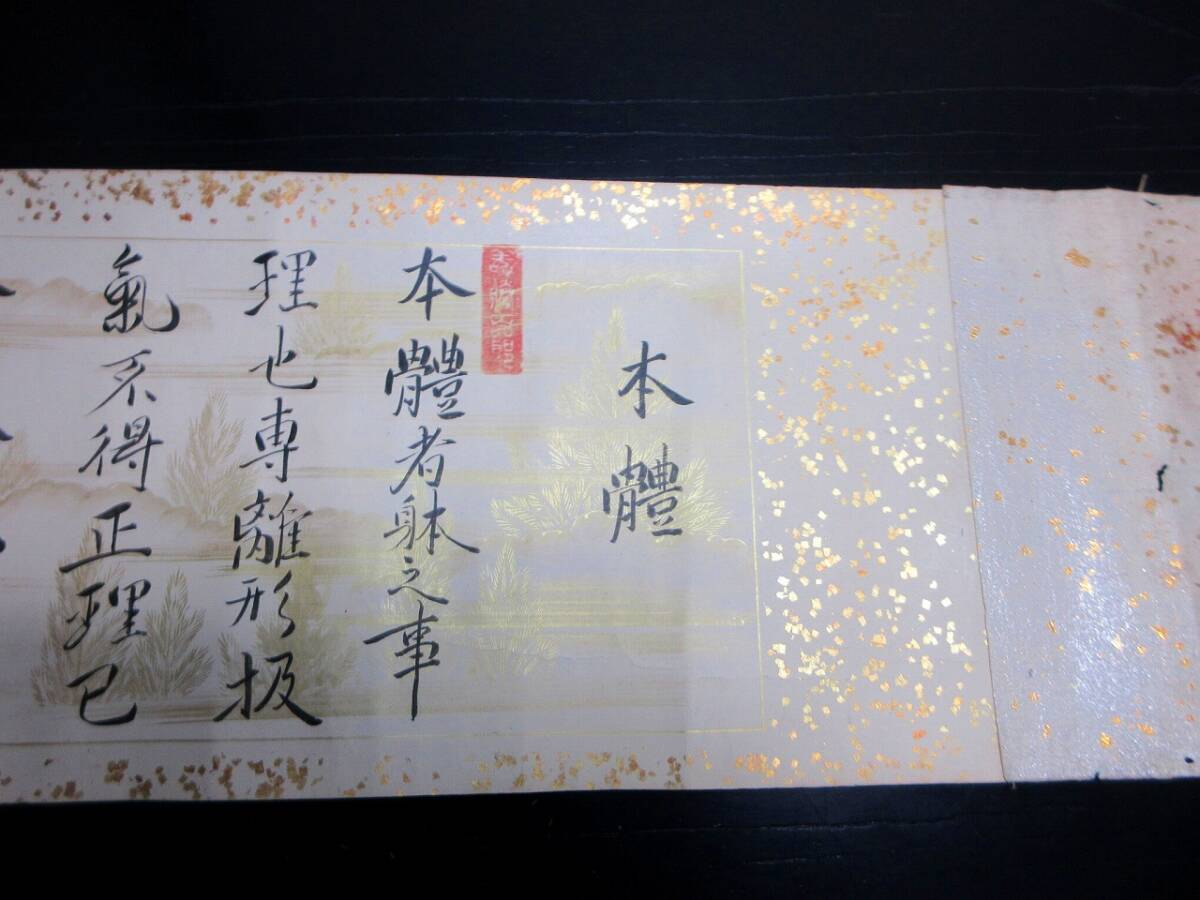 本體
本體者躰之事
理也専離形扱
氣不得正理已